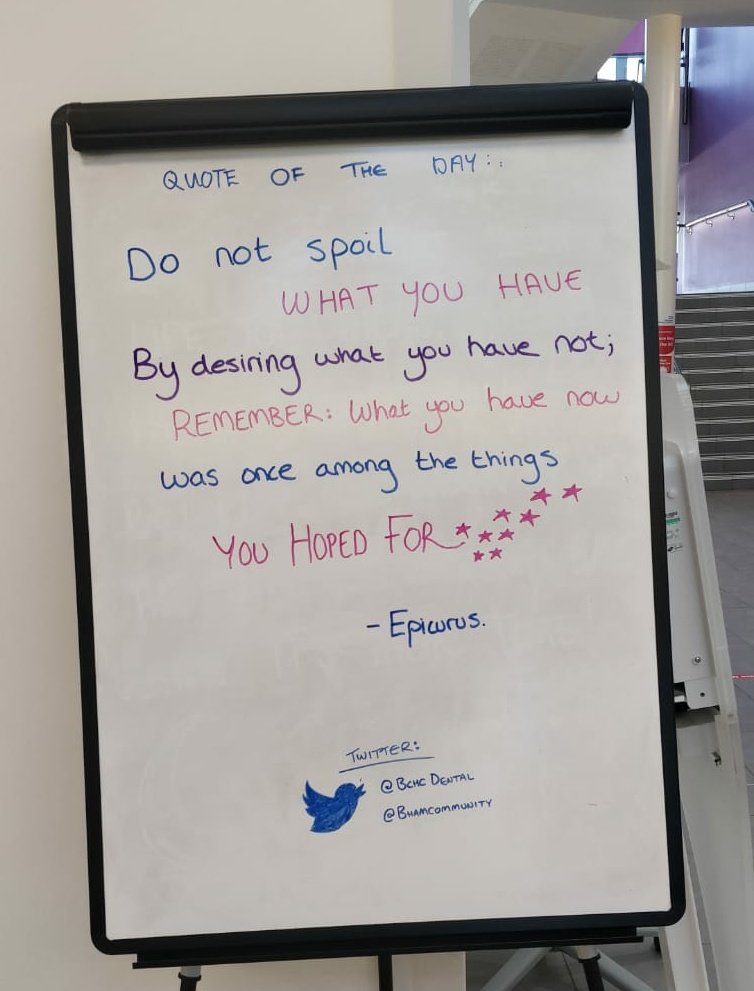 QUOTE OF THE DAY:.
Do not spoil
WHAT YOU HAVE
By desiring what you have not;
REMEMBER: What you have now
was once among the things
YOU HOPED FOR
- Epicurus.
TWITTER:
@BCHC DENTAL
@BHAMCOMMUNITY